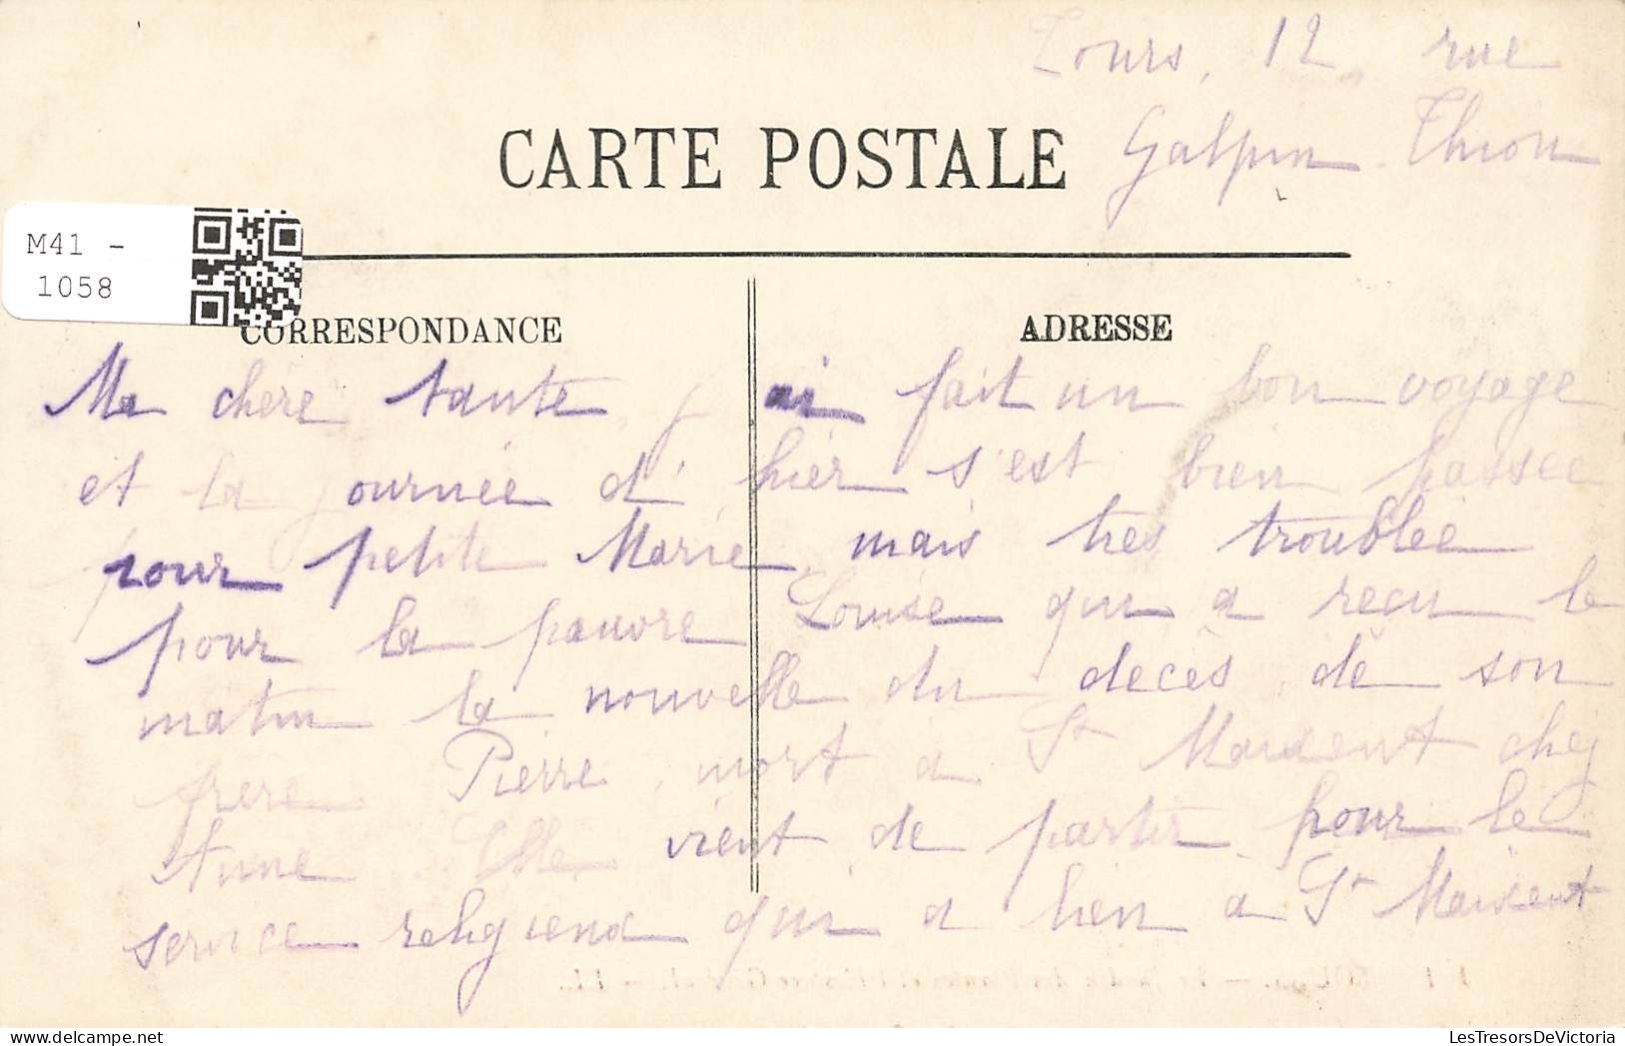 Tours, 12, rue
Galpin Thiou
CARTE POSTALE
M41 -
1058
CORRESPONDANCE
ADRESSE
Ma chère tante, j'ai fait un bon voyage
et la journée d'hier s'est bien passée
pour petite Marie, mais très troublée
pour la pauvre Louise qui a reçu le
matin la nouvelle du décès de son
frère Pierre, mort à St Maixent chez
Anne Elle vient de partir pour le
service religieux qui a lieu à St Maixent
LesTresorsDeVictoria